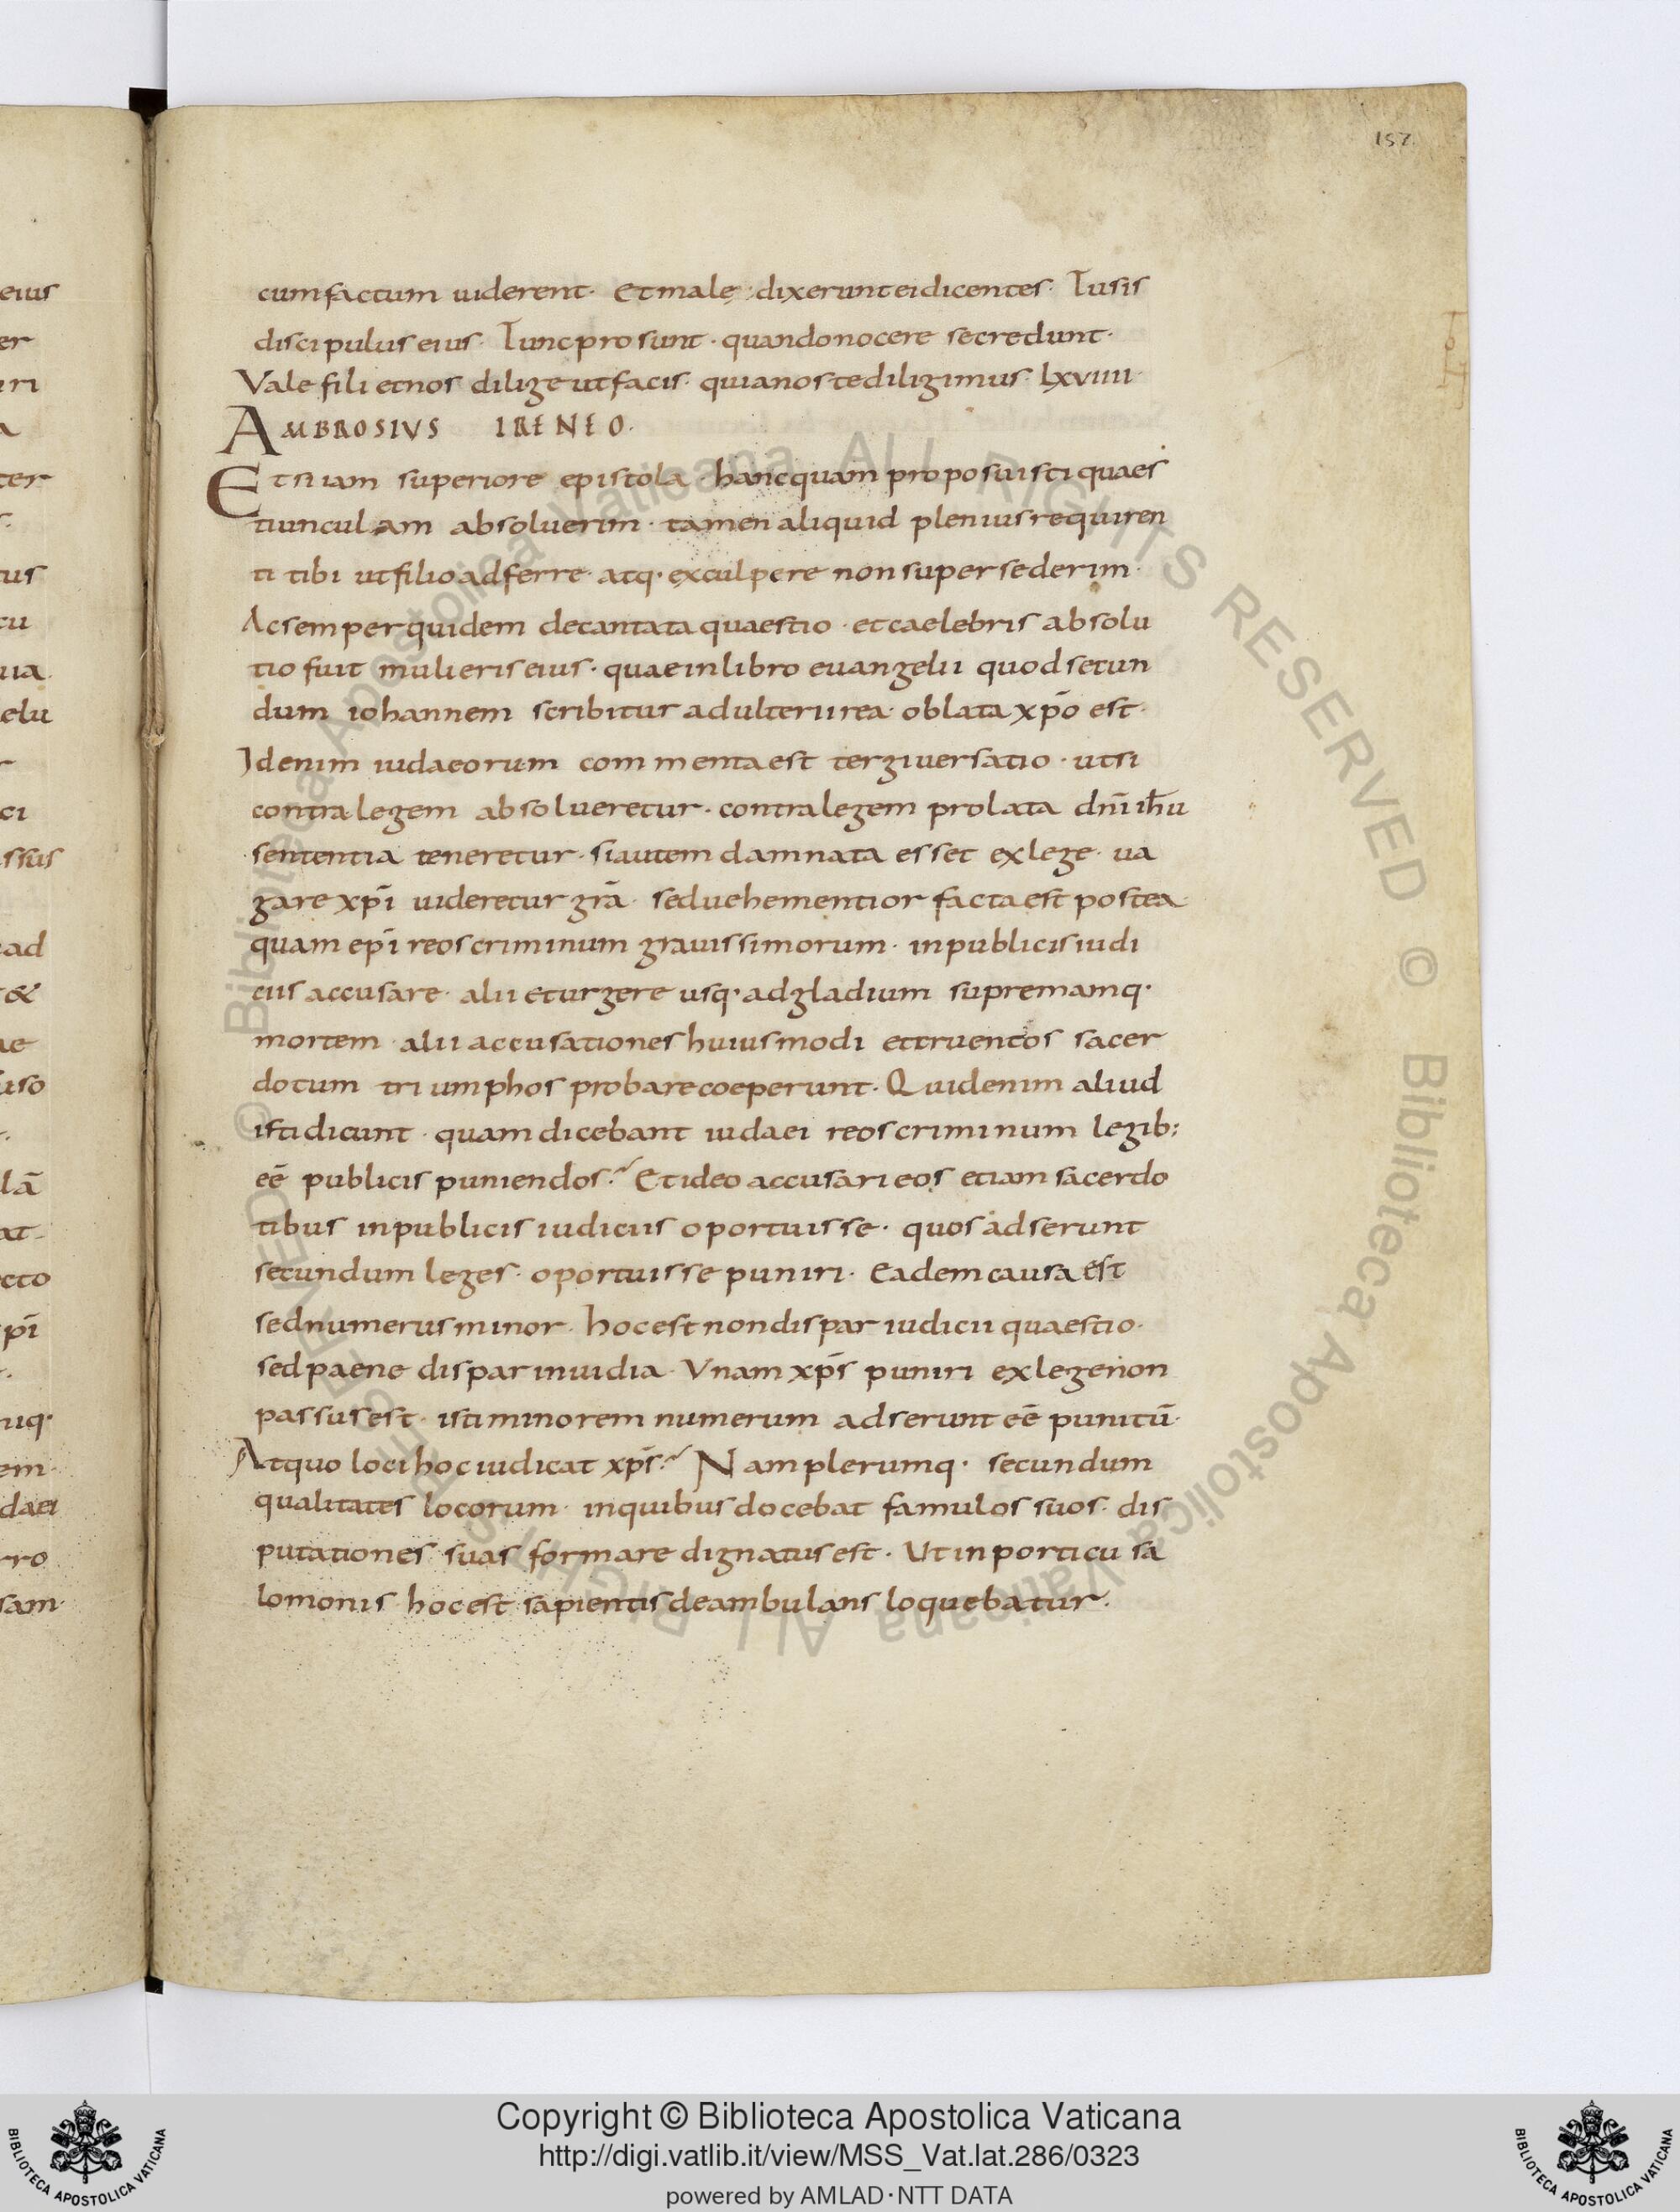 157.
cumfactum uiderent· Et malę dixerunt ei dicentes· Tu sis
discipulus eius· Tunc pro sunt· quando nocere se credunt·
Vale fili et nos dilige ut facis· quia nos te diligimus· lxviiii·
AMBROSIVS IRENEO·
Et si iam superiore epistola hanc quam proposuisti quaes
tiunculam absoluerim· tamen aliquid plenius requiren
ti tibi ut filio adferre· atq· exculpere non supersederim·
Ac semper quidem decantata quaestio· et caelebris absolu
tio fuit mulieris eius· quae in libro euangelii quod secun
dum iohannem scribitur adulterii rea· oblata xp̄o est·
Id enim iudaeorum commenta est tergiuersatio· ut si
contra legem absolueretur· contra legem prolata dn̄i ih̄u
sententia teneretur· si autem damnata esset ex lege· ua
gare xp̄i uideretur grā· sed uehementior facta est postea
quam epī reos criminum grauissimorum· in publicis iudi
ciis accusare· alii et urgere usq· ad gladium supremamq·
mortem· alii accusationes huiusmodi et cruentos sacer
dotum triumphos probare coeperunt· Quid enim aliud
isti dicunt· quam dicebant iudaei reos criminum legib:
eē publicis puniendos? Et ideo accusari eos etiam sacerdo
tibus in publicis iudiciis oportuisse· quos adserunt
secundum leges· oportuisse puniri· Eadem causa est
sed numerus minor· hoc est non dispar iudicii quaestio·
sed paene dispar inuidia· Vnam xp̄s puniri ex lege non
passus est· isti minorem numerum adserunt eē punitū·
At quo loci hoc iudicat xp̄s? Nam plerumq· secundum
qualitates locorum· in quibus docebat famulos suos· dis
putationes suas formare dignatus est· Ut in porticu sa
lomonis hoc est sapientis deambulans loquebatur·
eius
er
uri
ter
tus
cu
uia
elu
ci
ssus
ad
&
ae
uso
lā
at
ecto
pī
uq·
em
daei
rro
sam
© Biblioteca Apostolica Vaticana ALL RIGHTS RESERVED
© Biblioteca Apostolica Vaticana ALL RIGHTS RESERVED
BIBLIOTECA APOSTOLICA VATICANA
Copyright © Biblioteca Apostolica Vaticana
http://digi.vatlib.it/view/MSS_Vat.lat.286/0323
powered by AMLAD·NTT DATA
BIBLIOTECA APOSTOLICA VATICANA